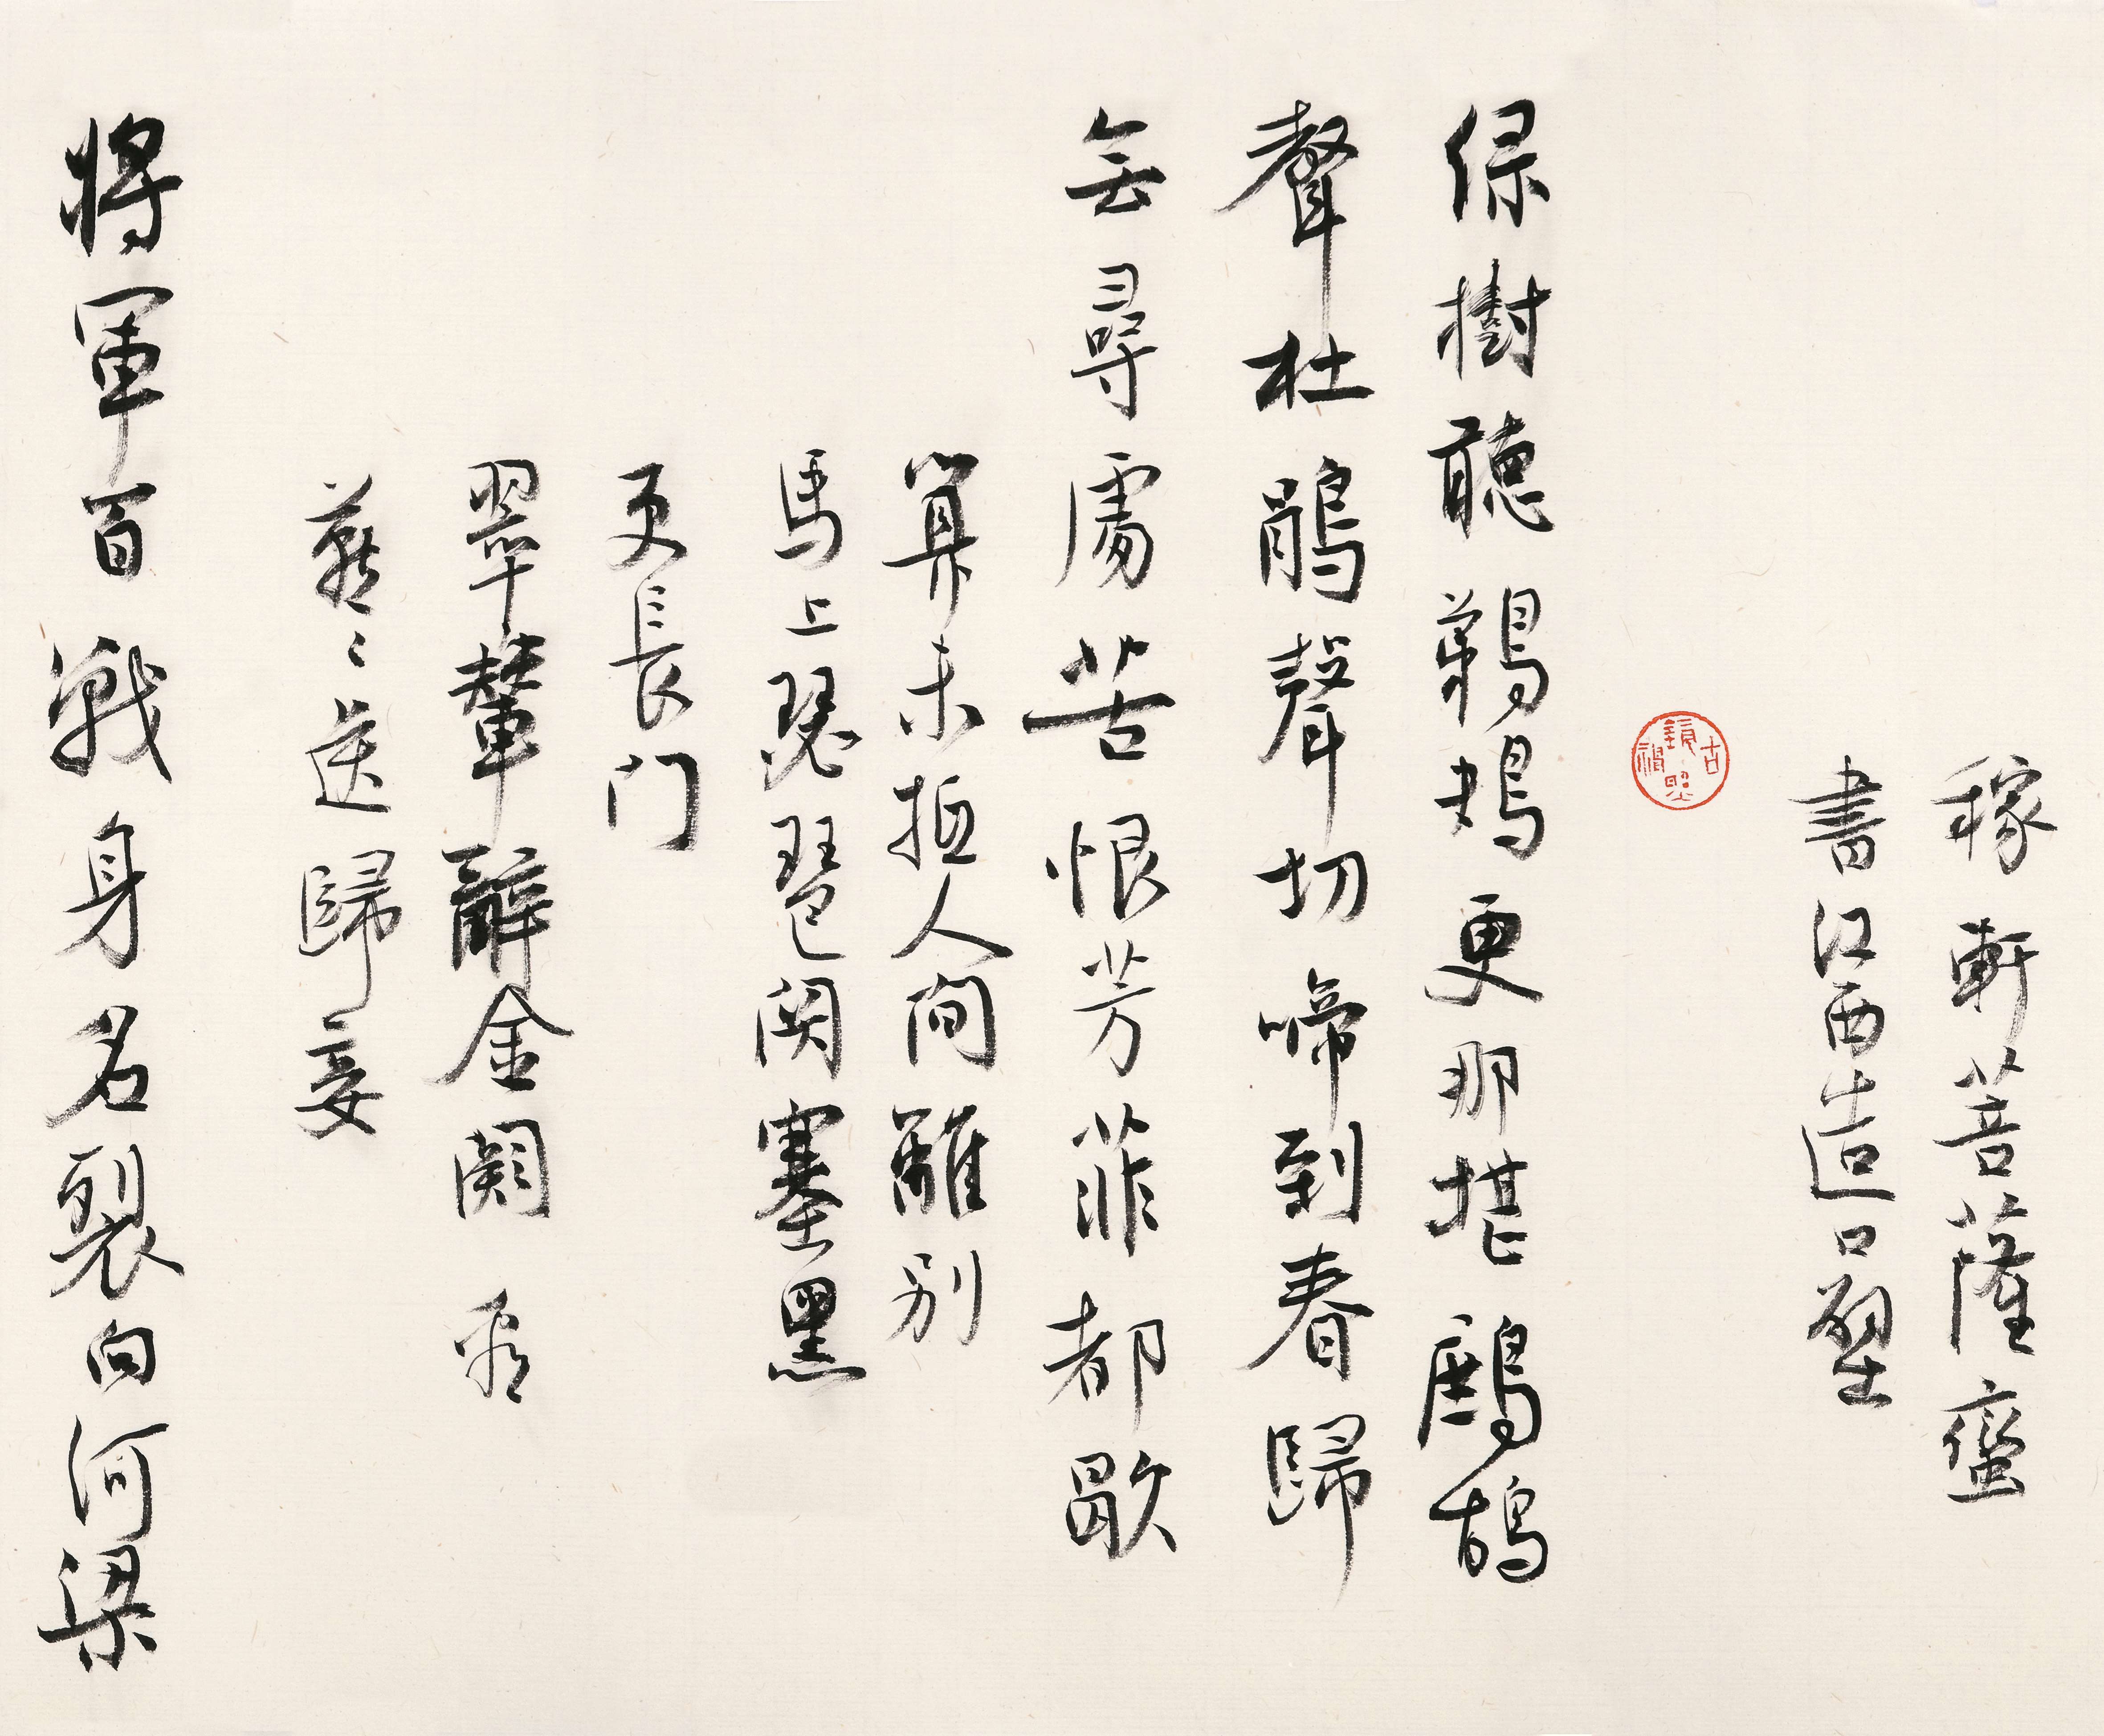 稼軒菩薩蠻
書江西造口壁
古鏡照神
綠樹聽鵜鴂更那堪鷓鴣
聲杜鵑聲切啼到春歸
無尋處苦恨芳菲都歇
算未抵人間離別
馬上琵琶関塞黑
更長门
翠輦辭金闕看
燕々送歸妾
將軍百戰身名裂向河梁